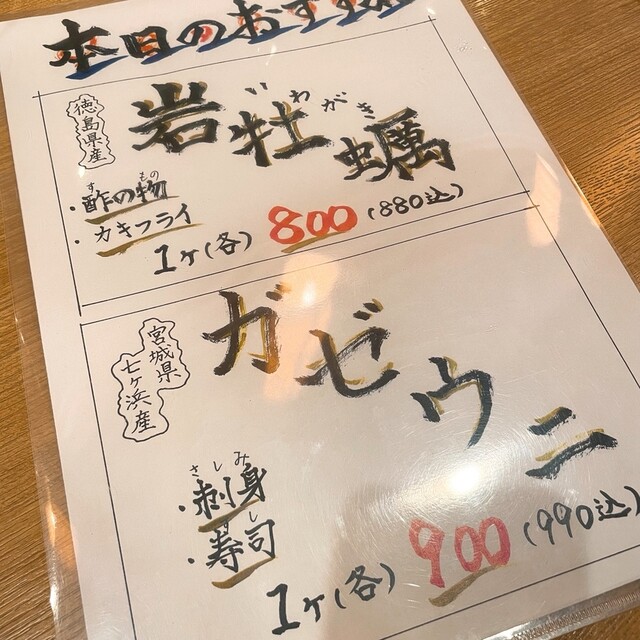 本日のおすすめ
徳島県産
いわがき
岩牡蠣
すのもの
・酢の物
・カキフライ
1ヶ(各) 800 (880込)
宮城県
七ヶ浜産
ガゼウニ
さしみ
・刺身
すし
・寿司
1ヶ(各) 900 (990込)